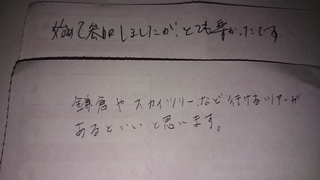 始めて参加しましたが、とても楽かったです
鎌倉やスカイツリーなど行けるツアーが
あるといいと思います。